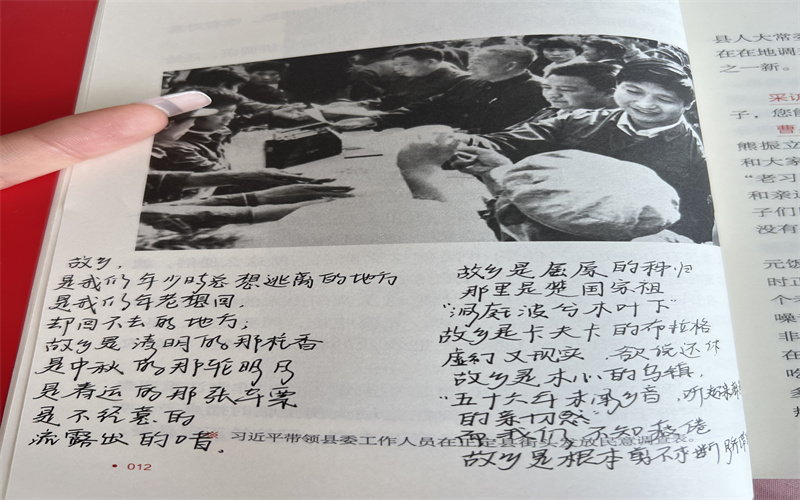 故乡,
是我们年少时总想逃离的地方
是我们年老想回,
却回不去的地方;
故乡是清明的那柱香
是中秋的那轮明月
是春运的那张车票
是不经意的
流露出的口音。
故乡是屈原的秭归
那里是楚国家祖
"洞庭波兮木叶下"
故乡是卡夫卡的布拉格
虚幻又现实、欲说还休
故乡是木心的乌镇,
"五十六年未闻乡音,听起来
的亲切然"
而我们,不知疲倦
故乡是根本剪不断
习近平带领县委工作人员在正定县街头发放民意调查表。
012
县人大常
在在地调
之一新。
采访
子,您
曹
熊振立
和大家
"老习
和亲
子们
没有
元饭
时正
个
噪
非
在
多